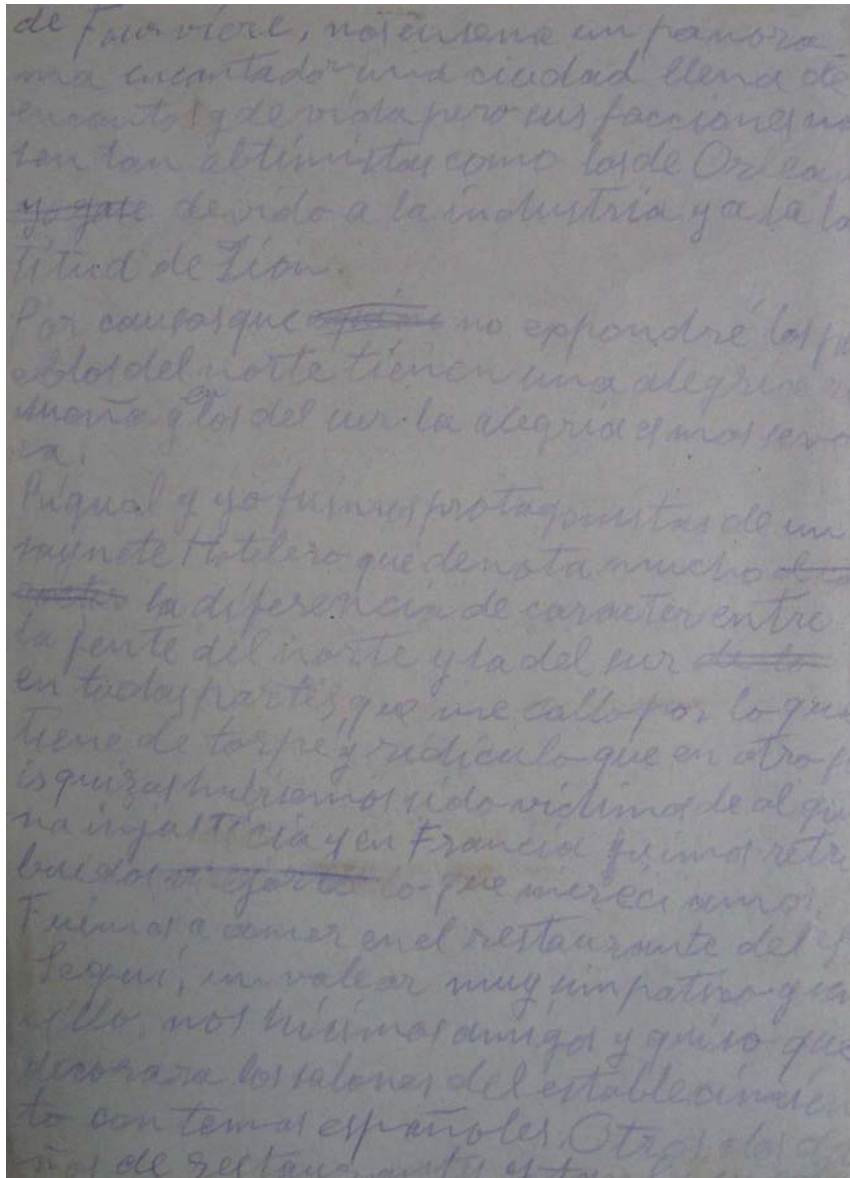 de Fourviere, nos enseña un panora
ma encantado una ciudad llena de
encantos y de vida pero sus facciones no
son tan obtimistas como los de Orlea
devido a la industria y a la la
titud de Lion.
Por causas que no expondré los pu
eblos del norte tienen una alegria ri
sueña y en los del sur la alegria es mas seve
ra.
Rigual y yo fuimos protagonistas de un
saynete Hotelero que denota mucho
la diferencia de caracter entre
la jente del norte y la del sur
en todas partes, que me callo por lo que
tiene de torpe y ridiculo que en otro pa
is quizas hubriamos sido vidima de algu
na injusticia y en Francia fuimos retri
buidos lo que mereciamos.
Fuimos a comer en el restaurante del
Segui, un valear muy simpatico y
nos hicimos amigos y quiso que
decorara los salones del establecimien
to con temas españoles. Otros
ños de restaurantes